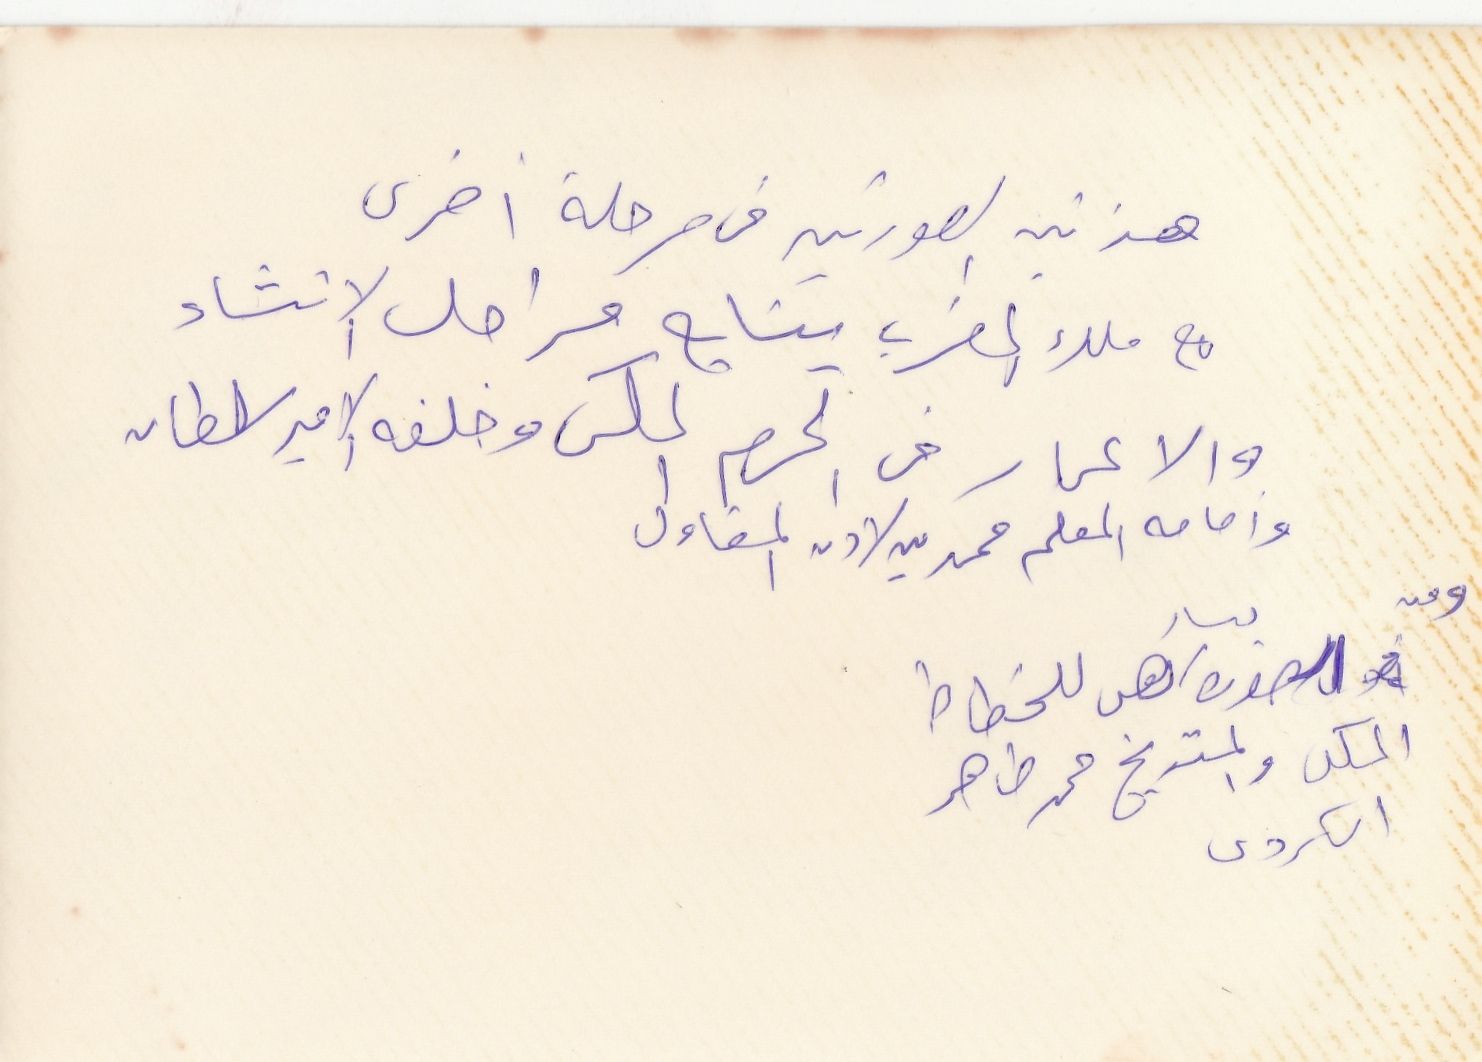 هذتين الصورتين فى مرحلة أخرى
مع ملك المغرب يتابع مراحل الانشاء
والاعمار فى الحرم المكى وخلفه الامير سلطان
وأمامه المعلم محمد بن لادن المقاول
ومن
يسار
الصورة للخطاط
المكى والمؤرخ محمد طاهر
الكردى